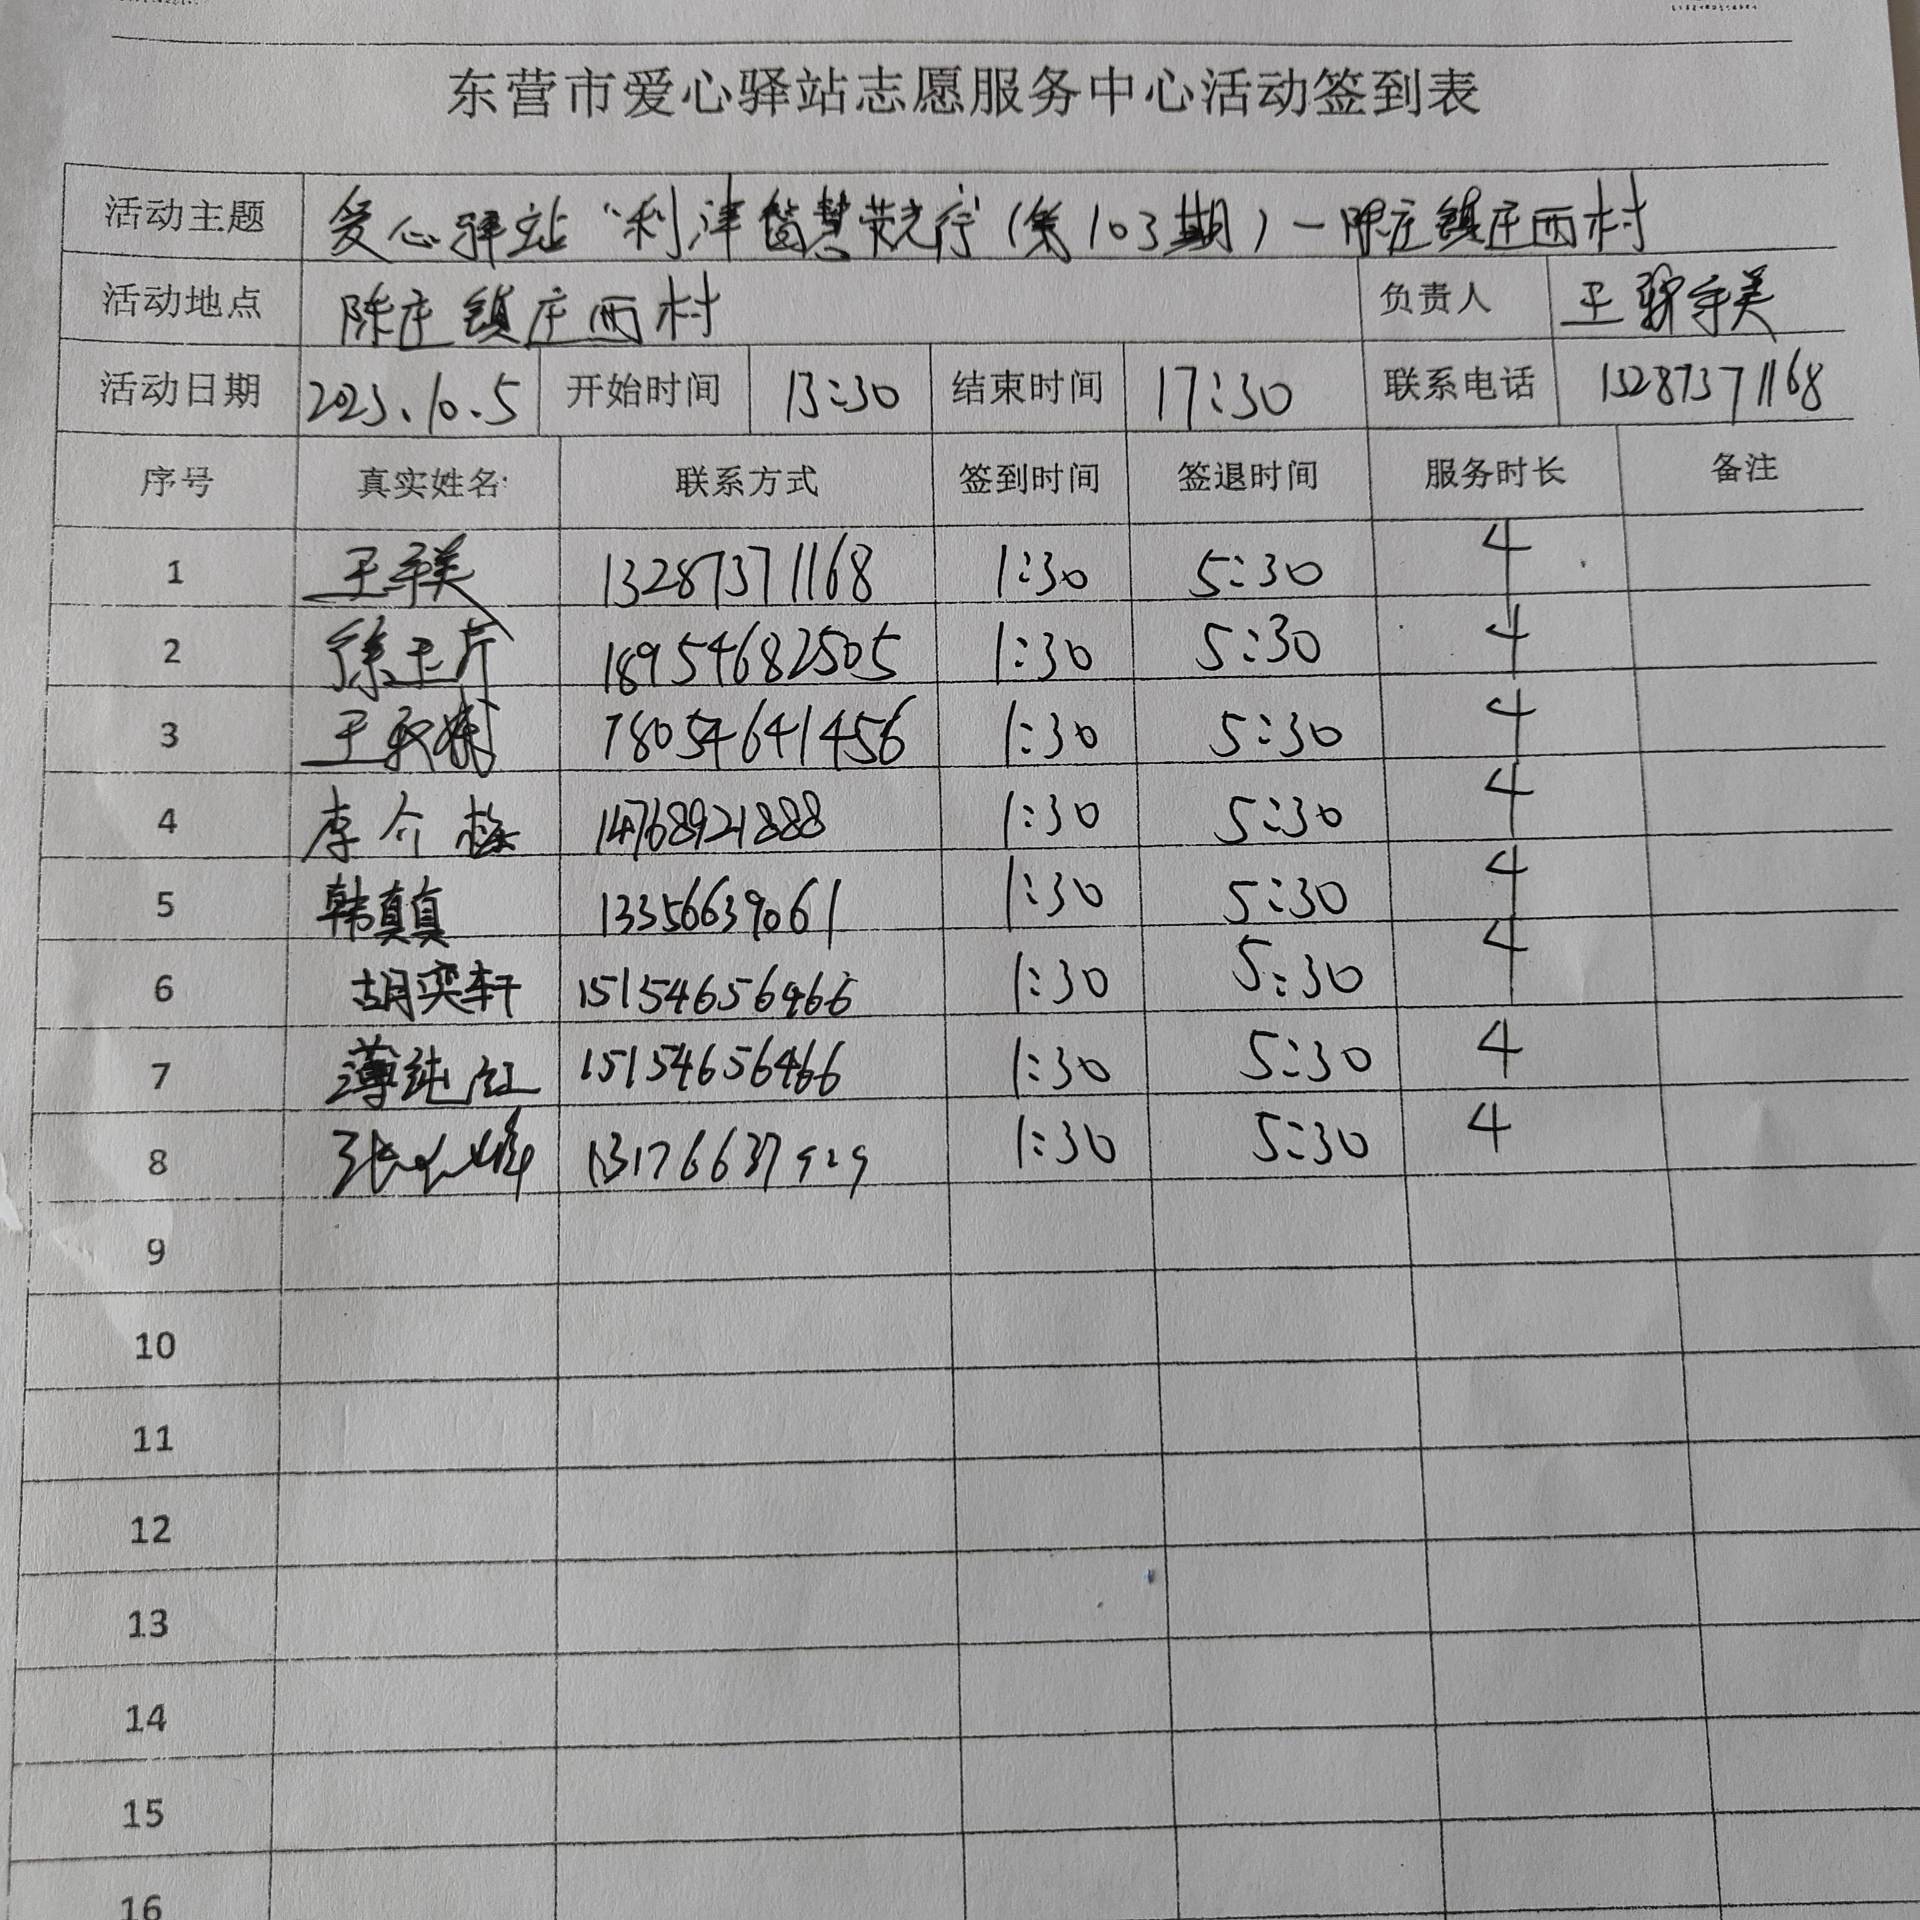 东营市爱心驿站志愿服务中心活动签到表
活动主题 爱心驿站“利津智慧荧光行”(第103期)-陈庄镇庄西村
活动地点 陈庄镇庄西村 负责人 王
活动日期 2023.10.5 开始时间 13:30 结束时间 17:30 联系电话 13287371168
序号 真实姓名 联系方式 签到时间 签退时间 服务时长 备注
1 王 13287371168 1:30 5:30 4
2 徐玉芹 18954682505 1:30 5:30 4
3 王 18054641456 1:30 5:30 4
4 李介梅 14768921888 1:30 5:30 4
5 韩真真 13356639061 1:30 5:30 4
6 胡奕轩 15154656466 1:30 5:30 4
7 薄纯红 15154656466 1:30 5:30 4
8 张 13176637929 1:30 5:30 4
9
10
11
12
13
14
15
16